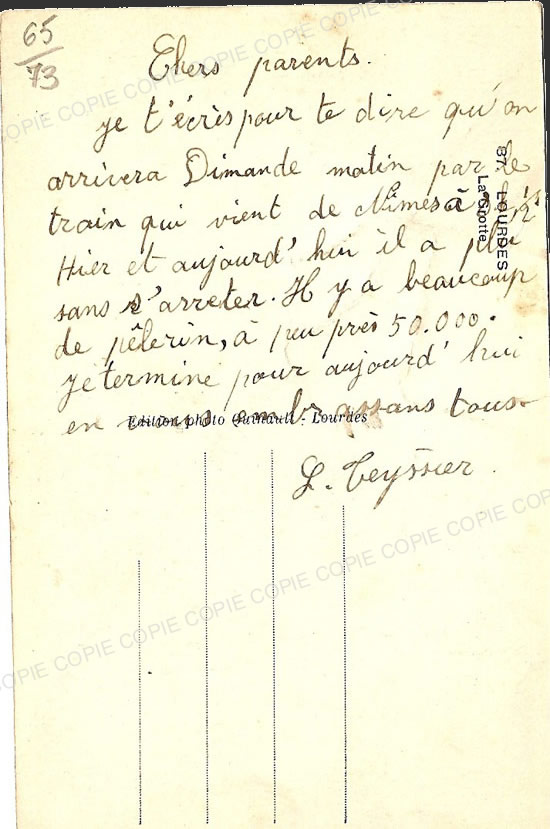 65
73
Chers parents.
je t'écris pour te dire qu'on
arrivera Dimande matin par le
train qui vient de Nimes à
Hier et aujourd'hui il a plu
sans s'arreter. Il y a beaucoup
de pêlerin, à peu près 50.000.
je termine pour aujourd'hui
en vous embrassans tous.
L. Teyssier.
87. LOURDES
La Grotte
Edition photo - Lourdes
COPIE COPIE COPIE COPIE COPIE COPIE COPIE
COPIE COPIE COPIE COPIE COPIE COPIE COPIE COPIE COPIE